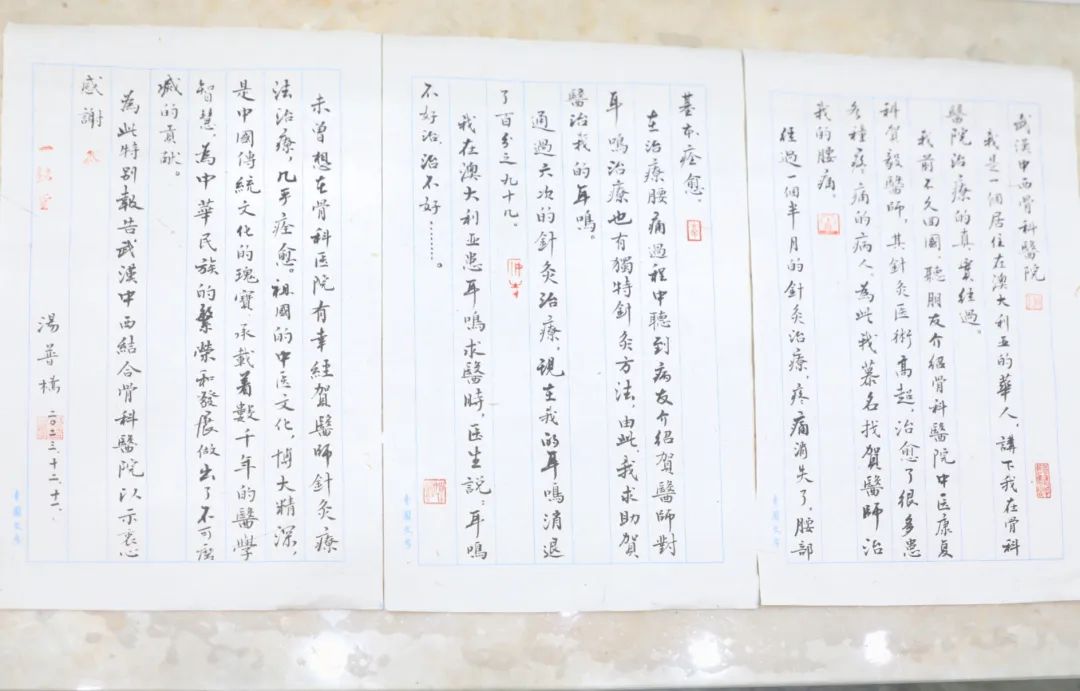 武漢中西骨科醫院
我是一個居住在澳大利亞的華人，講下我在骨科
醫院治療的真實經過。
我前不久回國，聽朋友介紹骨科醫院中医康复
科賀毅醫师，其針灸医術高超，治愈了很多患
各種疼痛的病人，為此我慕名找賀醫师治
我的腰痛。
经過一個半月的針灸治療，疼痛消失了，腰部
基本痊愈。
在治療腰痛過程中聽到病友介紹賀醫师對
耳鳴治療也有獨特針灸方法，由此，我求助賀
醫治我的耳鳴。
通過六次的針灸治療，現在我的耳鳴消退
了百分之九十几。
我在澳大利亚患耳鳴求醫時，医生説，耳鳴
不好治，治不好……。
未曾想在骨科医院有幸經賀醫师針灸療
法治療，几乎痊愈。祖國的中医文化，博大精深，
是中國傳統文化的瑰寶，承載着數千年的醫學
智慧，為中華民族的繁榮和發展做出了不可磨
滅的貢献。
為此特别報告武漢中西結合骨科醫院以示衷心
感謝
湯普橋 二〇二三.十二.十一.
青園文房
青園文房
青園文房